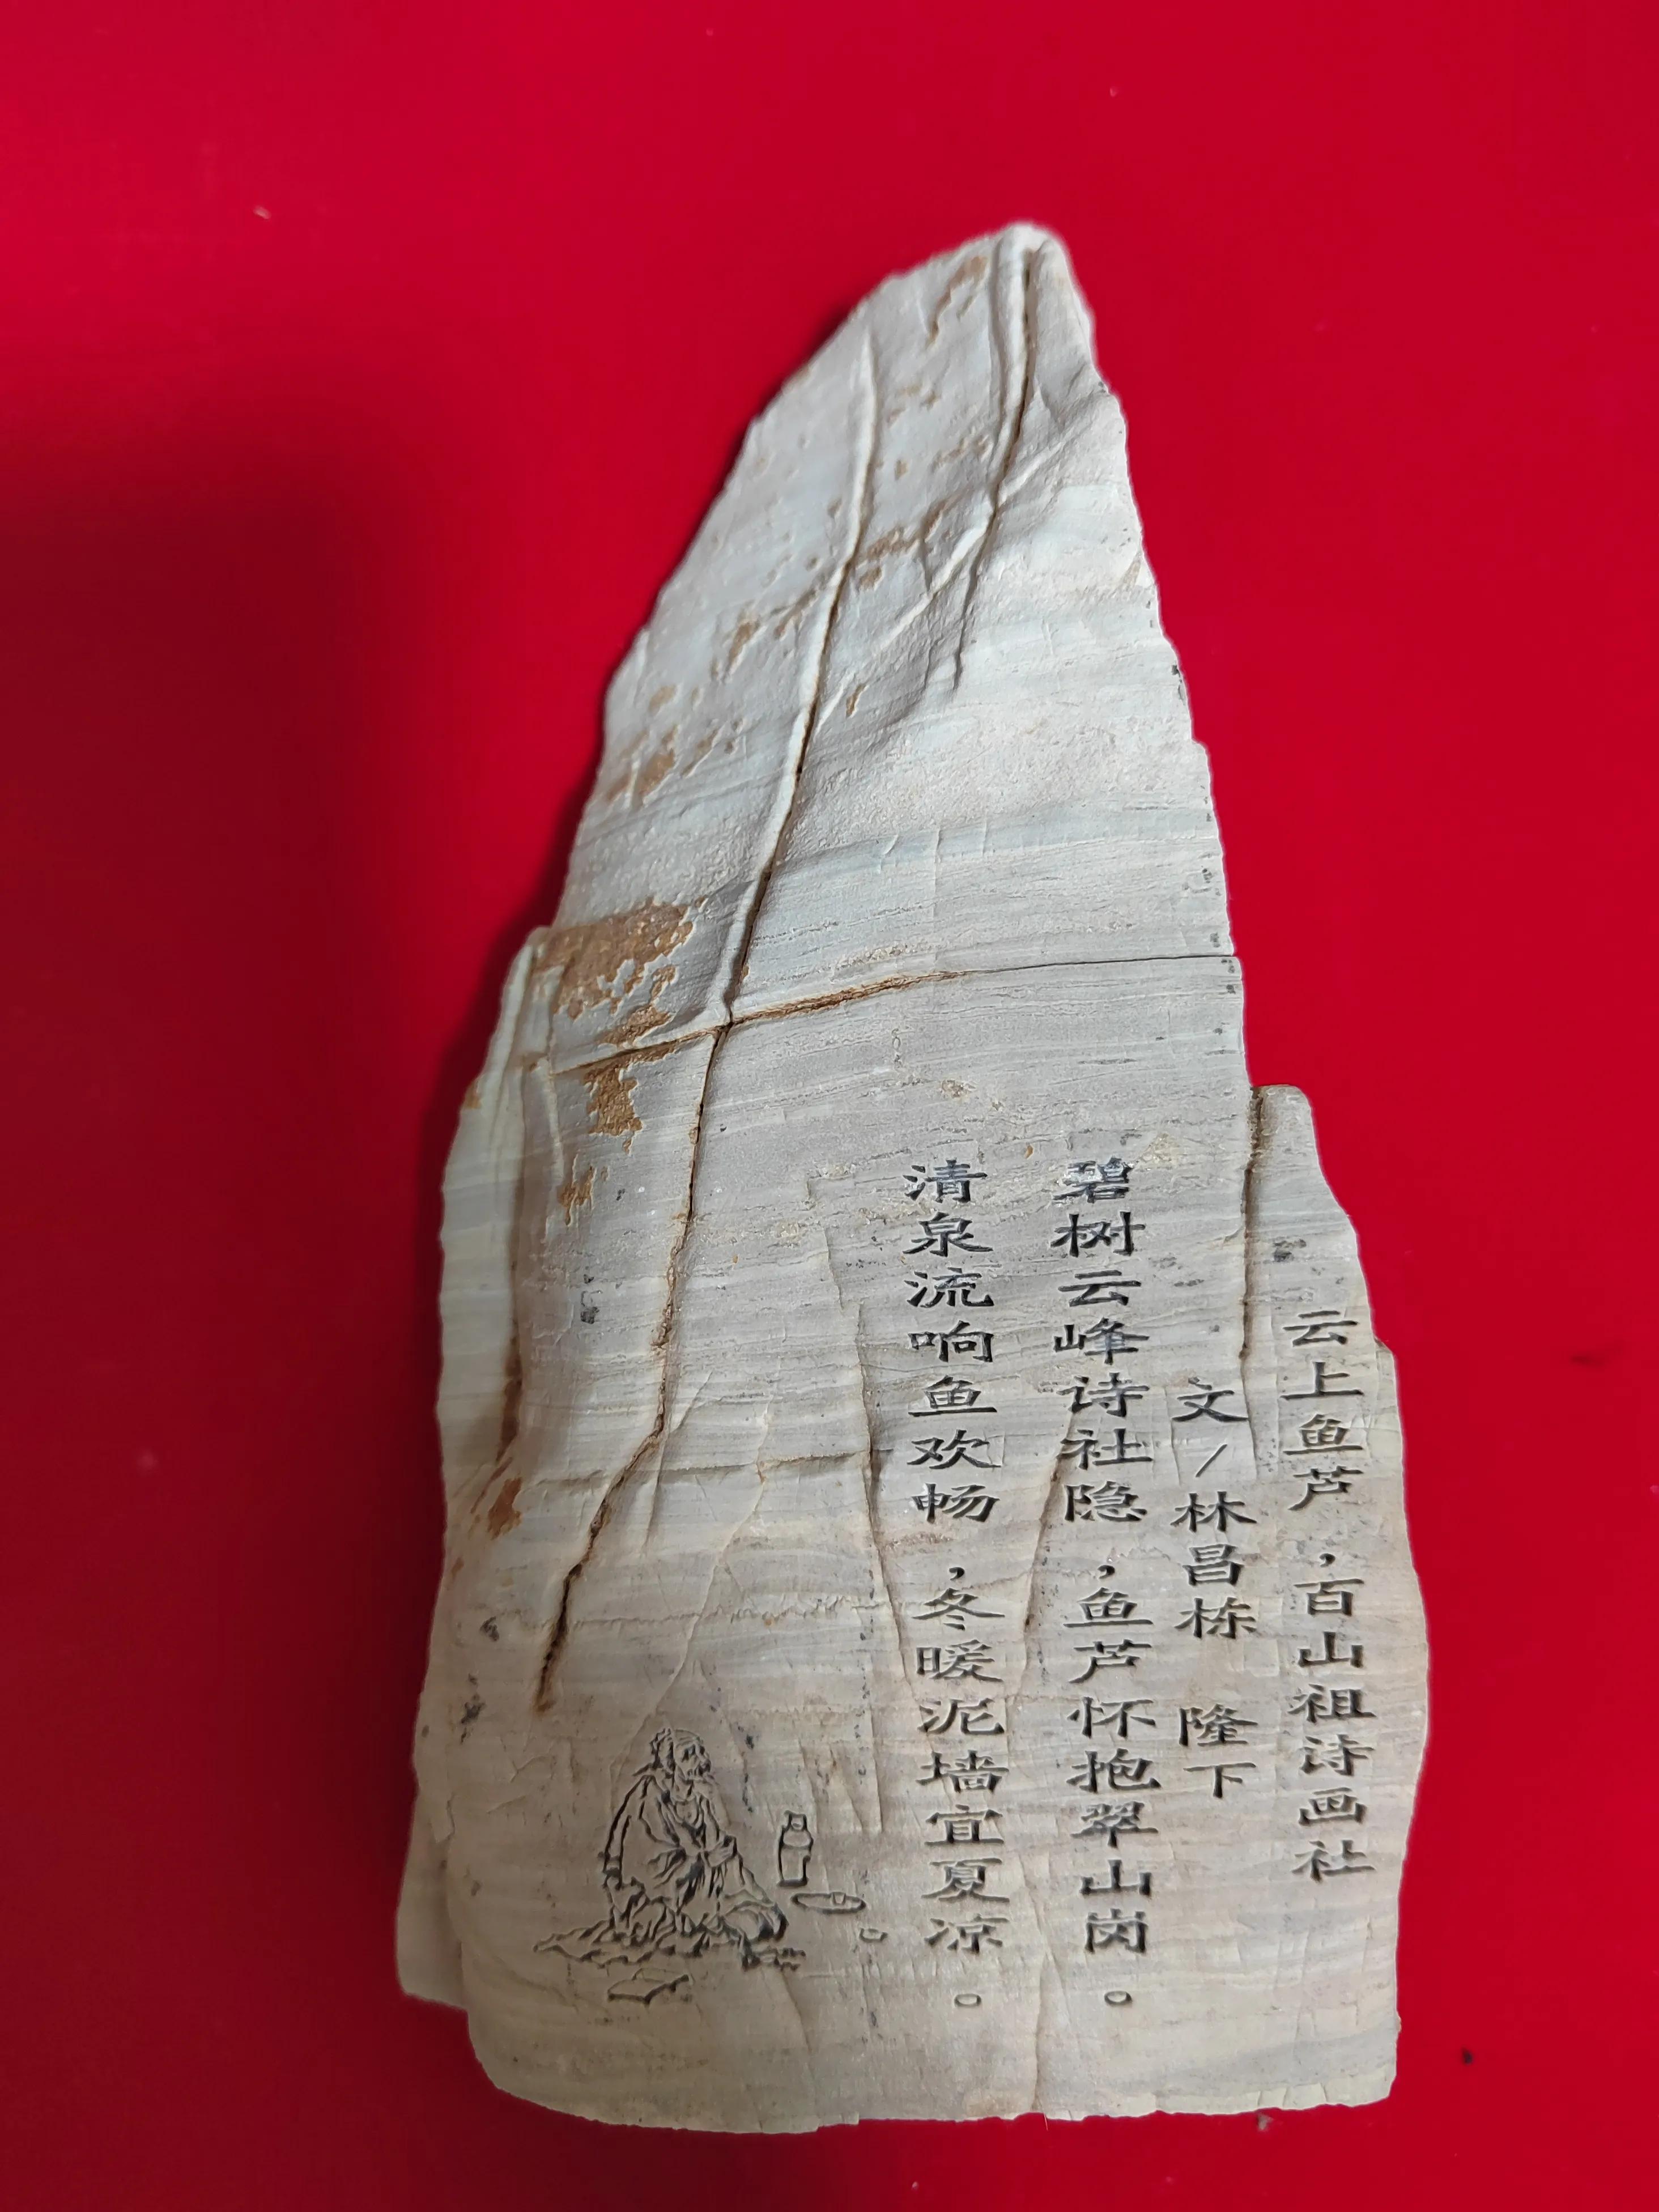 云上鱼芦，百山祖诗画社
文/林昌栋 隆下
碧树云峰诗社隐，鱼芦怀抱翠山岗。
清泉流响鱼欢畅，冬暖泥墙宜夏凉。